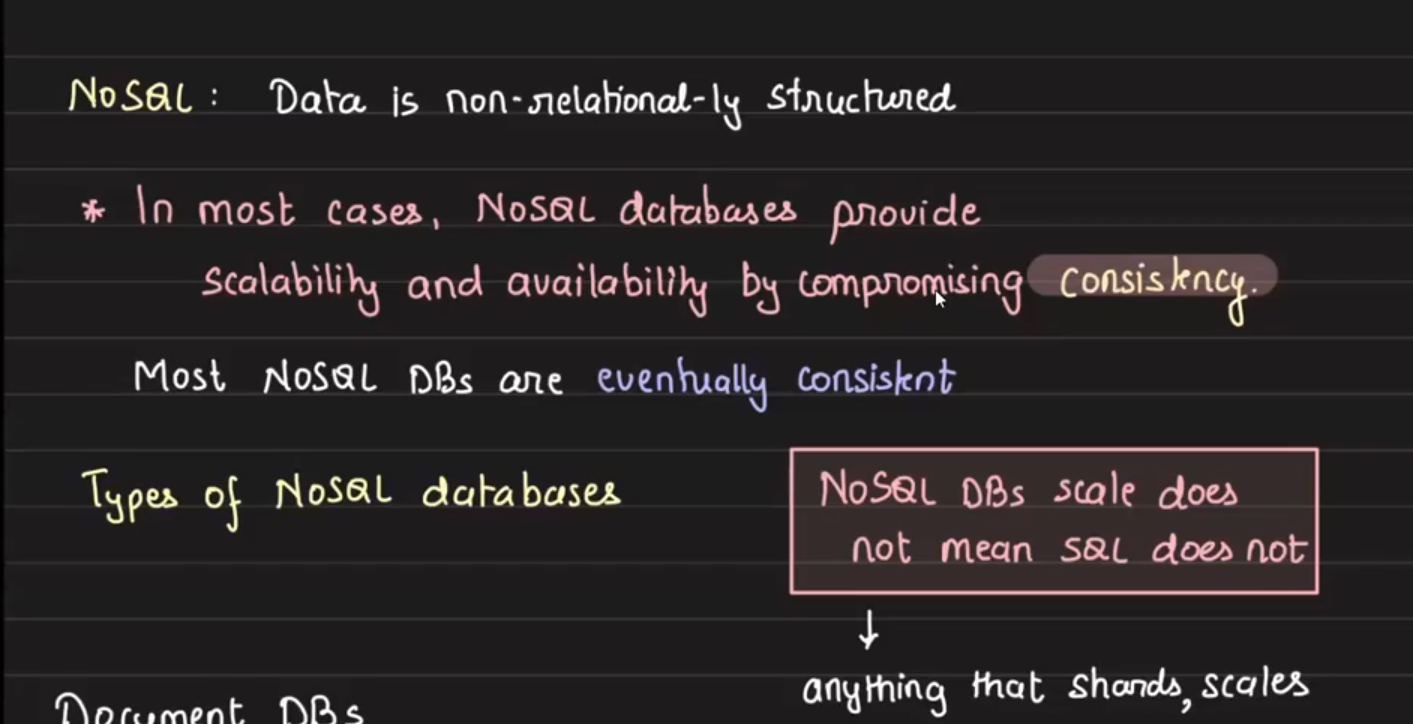 NoSQL: Data is non-relational-ly structured
* In most cases, NoSQL databases provide
scalability and availability by compromising consistency.
Most NoSQL DBs are eventually consistent
Types of NoSQL databases
NoSQL DBs scale does
not mean SQL does not
↓
anything that shards, scales
Document DBs